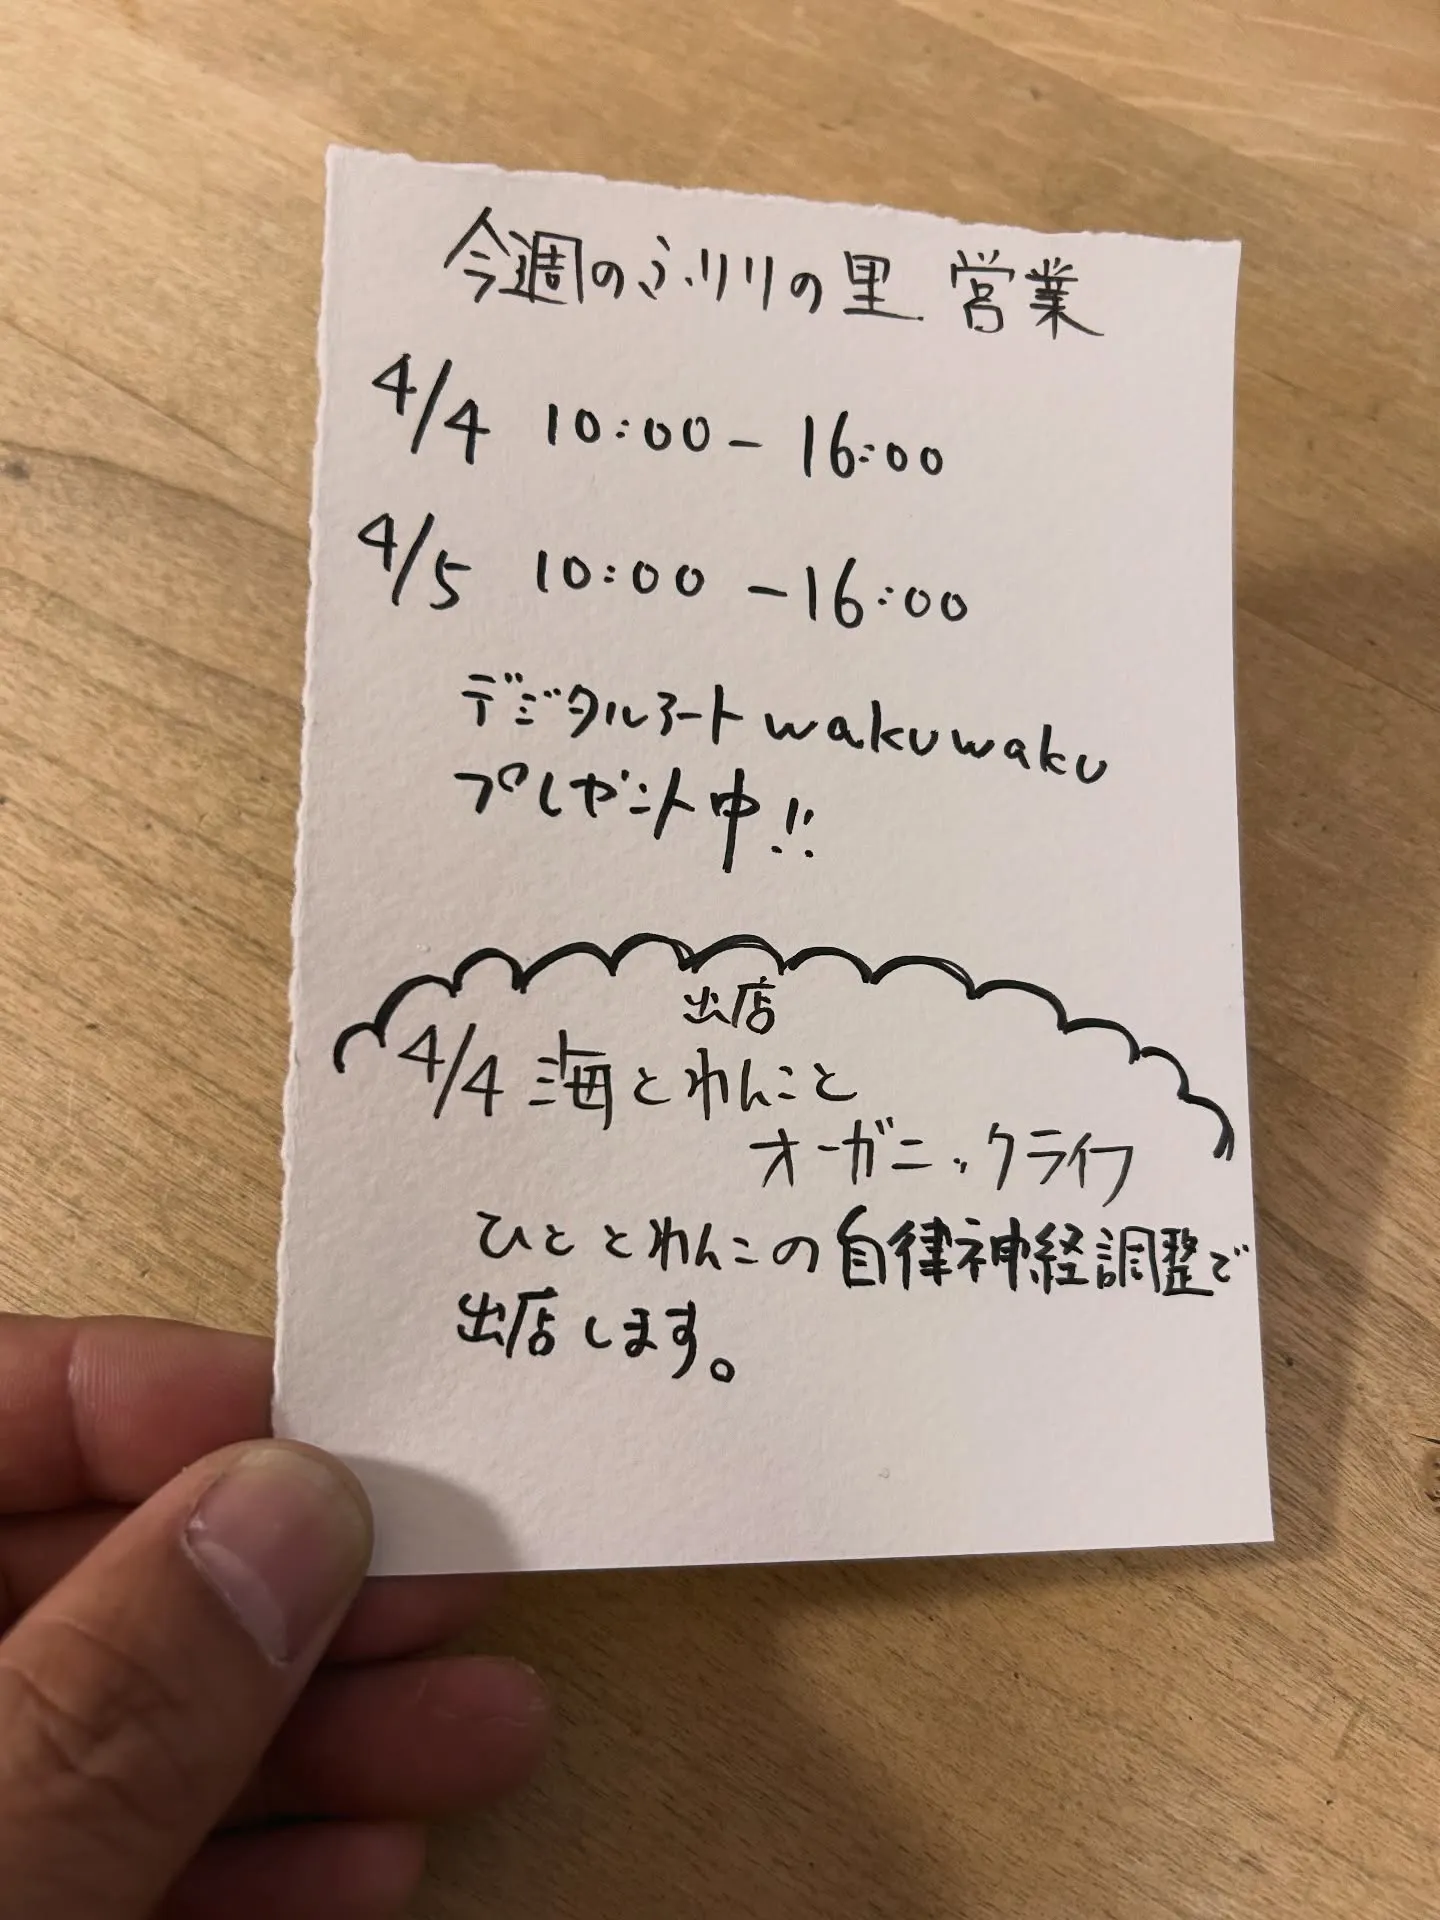 今週のふりりの里 営業
4/4 10:00-16:00
4/5 10:00-16:00
デジタルアートwakuwaku
プレゼント中!!
出店
4/4 海とわんこと
オーガニックライフ
ひととわんこの自律神経調整で
出店します。